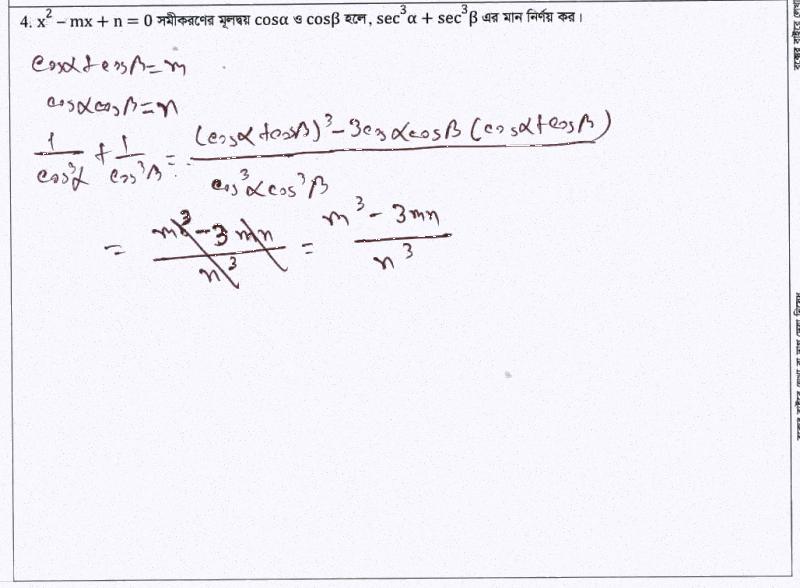 4. x² – mx + n = 0 সমীকরণের মূলদ্বয় cosα ও cosβ হলে, sec³α + sec³β এর মান নির্ণয় কর।
cosα + cosβ = m
cosα cosβ = n
1/cos³α + 1/cos³β = (cosα + cosβ)³ – 3cosαcosβ (cosα + cosβ) / cos³α cos³β
= m³ – 3mn / n³ = m³ – 3mn / n³